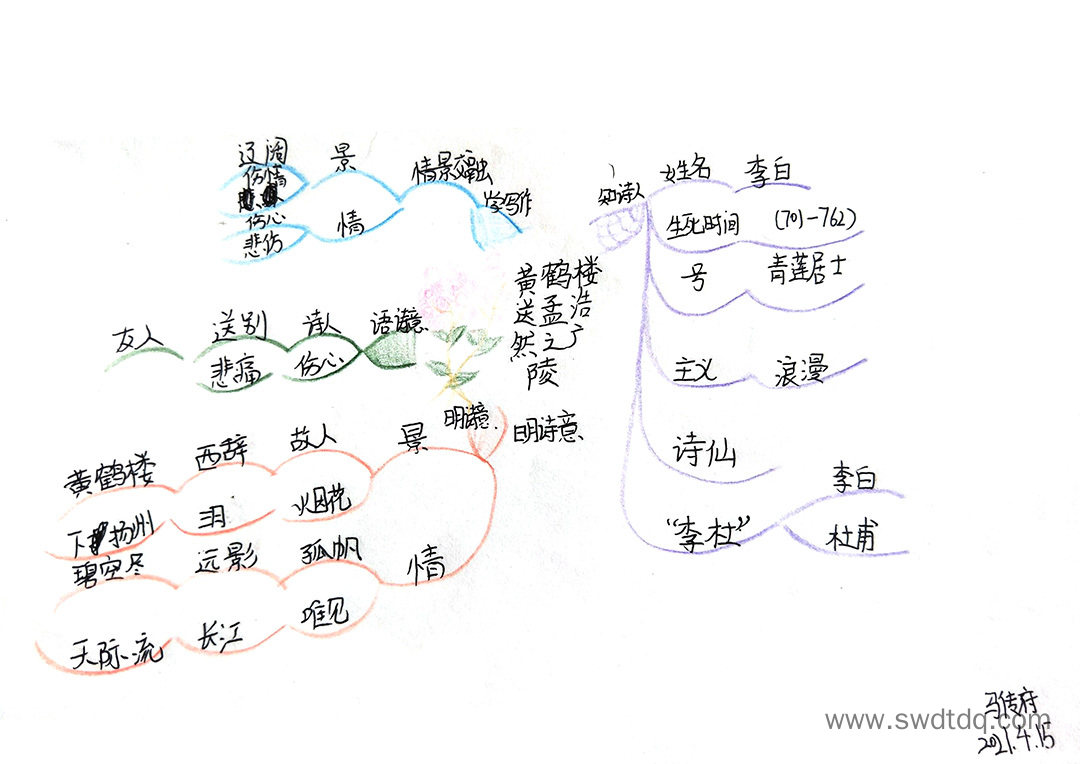 黄鹤楼
送孟浩
然之了
陵
知诗人
姓名
李白
生死时间
(701-762)
号
青莲居士
主义
浪漫
诗仙
“李杜”
李白
杜甫
明诗意
景
故人
西辞
黄鹤楼
烟花
三月
下扬州
情
孤帆
远影
碧空尽
唯见
长江
天际流
诗人
送别
友人
伤心
悲痛
学写作
情景交融
景
辽阔
伤情
情
伤心
悲伤
马传府
2021.4.15
www.swdtdq.com